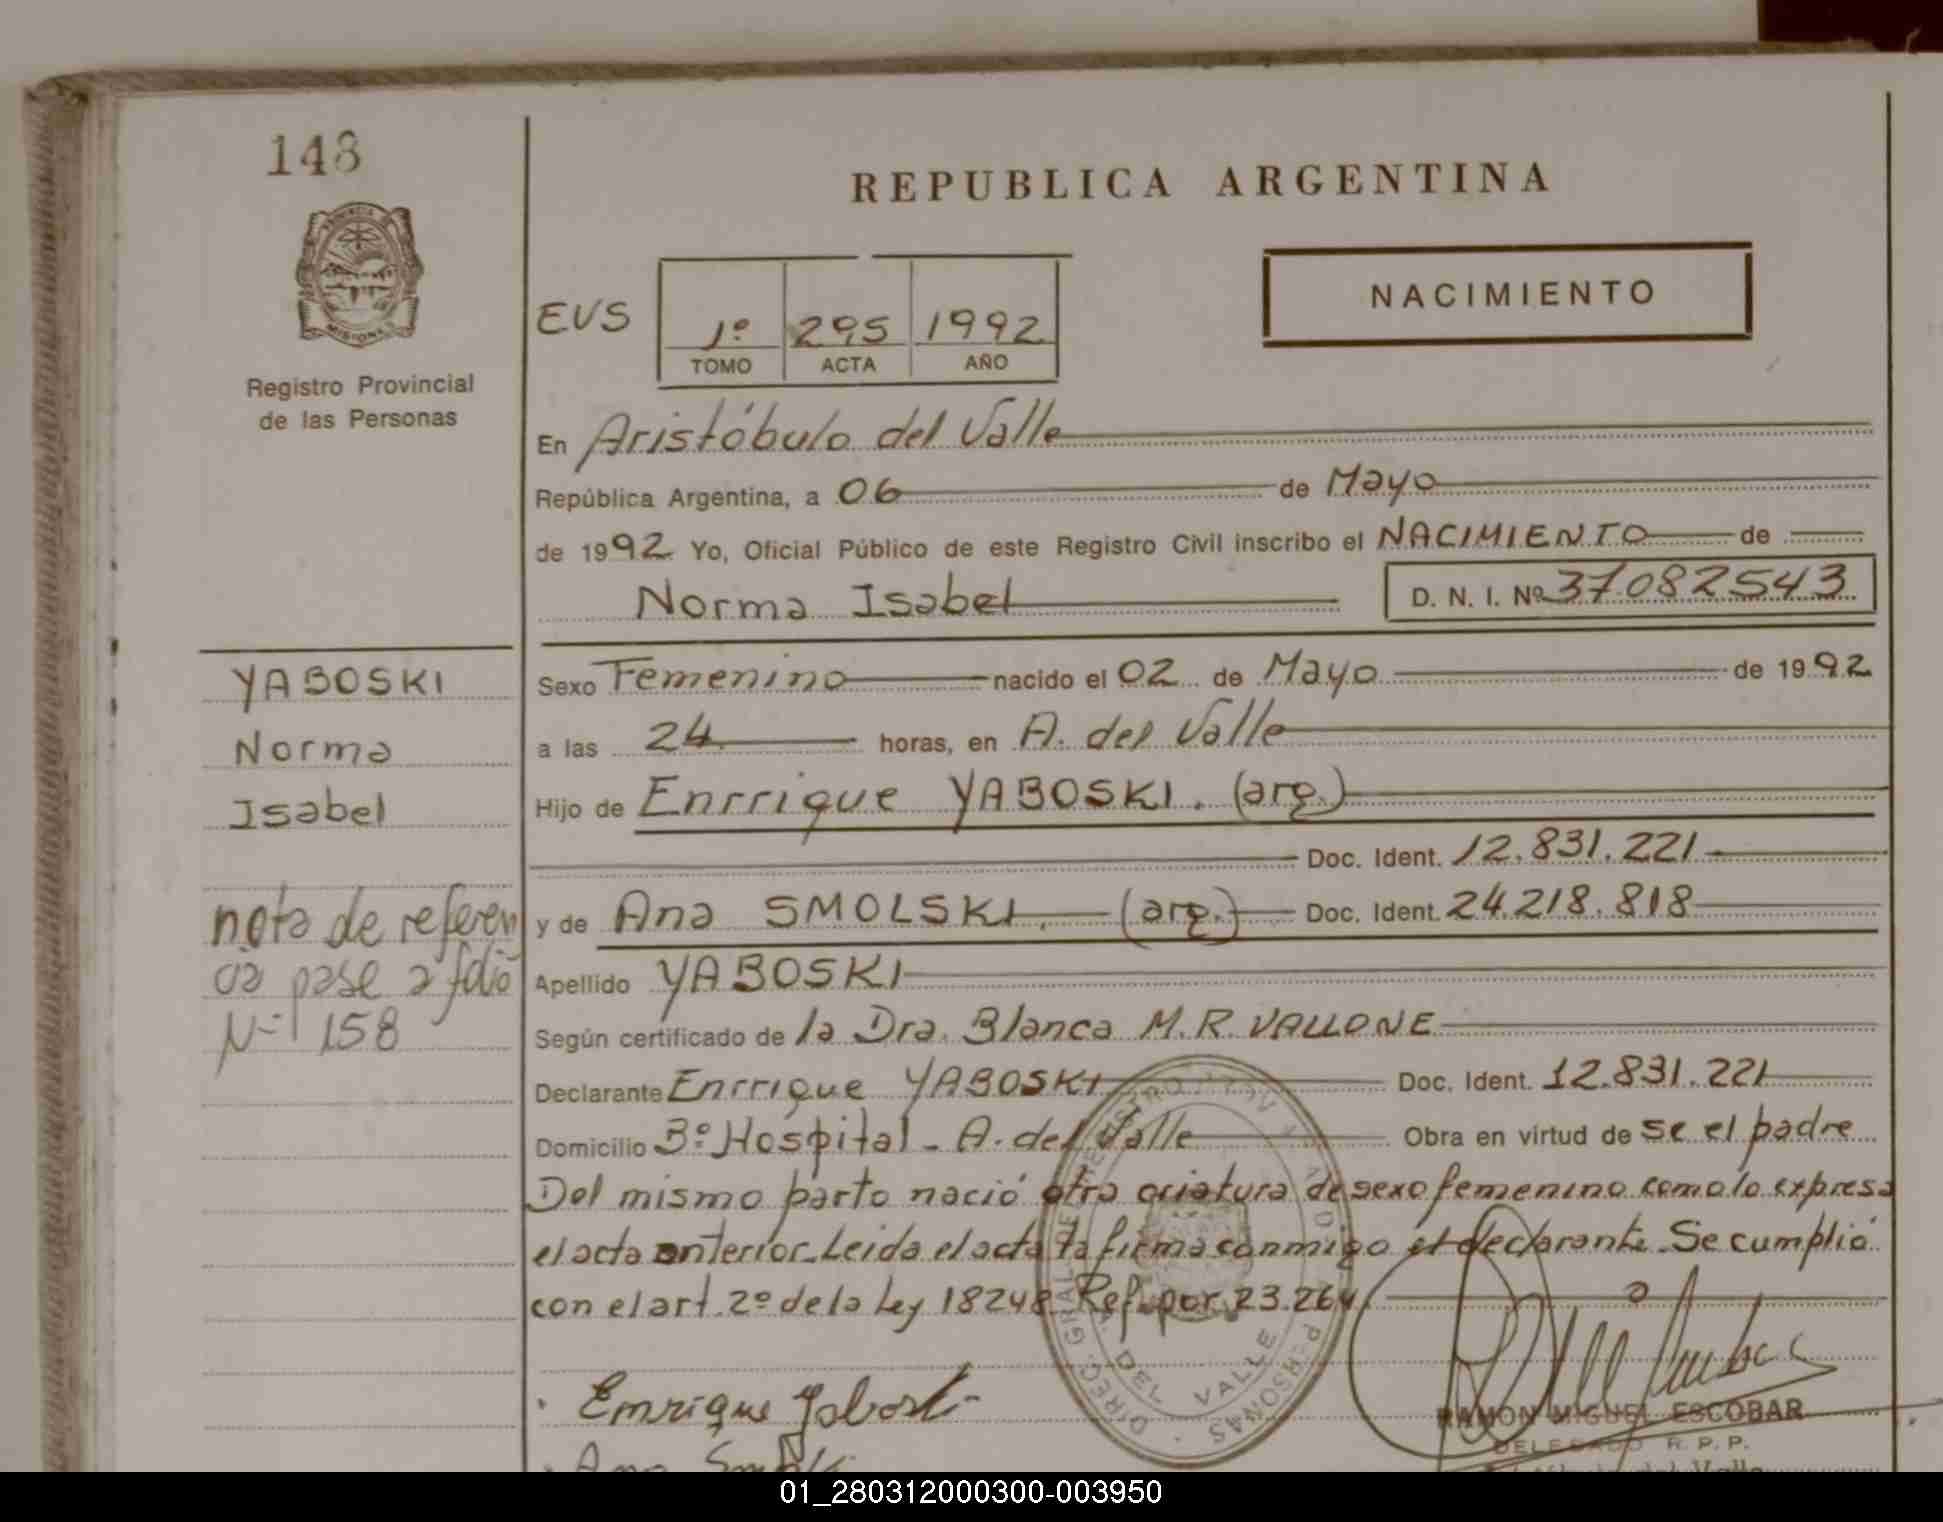 148
REPUBLICA ARGENTINA
PROVINCIA DE
MISIONES
Registro Provincial
de las Personas
NACIMIENTO
EVS
1º 295 1992
TOMO ACTA AÑO
En Aristóbulo del Valle
República Argentina, a 06 de Mayo
de 1992 Yo, Oficial Público de este Registro Civil inscribo el NACIMIENTO de
Norma Isabel D. N. I. Nº 37082543
YABOSKI
Norma
Isabel
nota de referen
cia pase a folio
Nº 158
Sexo Femenino nacido el 02 de Mayo de 1992
a las 24 horas, en A. del Valle
Hijo de Enrrique YABOSKI. (arg.)
Doc. Ident. 12.831.221
y de Ana SMOLSKI. (arg.) Doc. Ident. 24.218.818
Apellido YABOSKI
Según certificado de la Dra. Blanca M. R. VALLONE
Declarante Enrrique YABOSKI Doc. Ident. 12.831.221
Domicilio Bº Hospital - A. del Valle Obra en virtud de se el padre
Del mismo parto nació otra criatura de sexo femenino como lo expresa
el acta anterior. Leida el acta la firma conmigo el declarante. Se cumplió
con el art. 2º de la Ley 18248 Ref. por 23.264.
DEL VALLE
Enrique Yaboski
Ana
RAMON MIGUEL ESCOBAR
DELEGADO R. P. P.
01_280312000300-003950